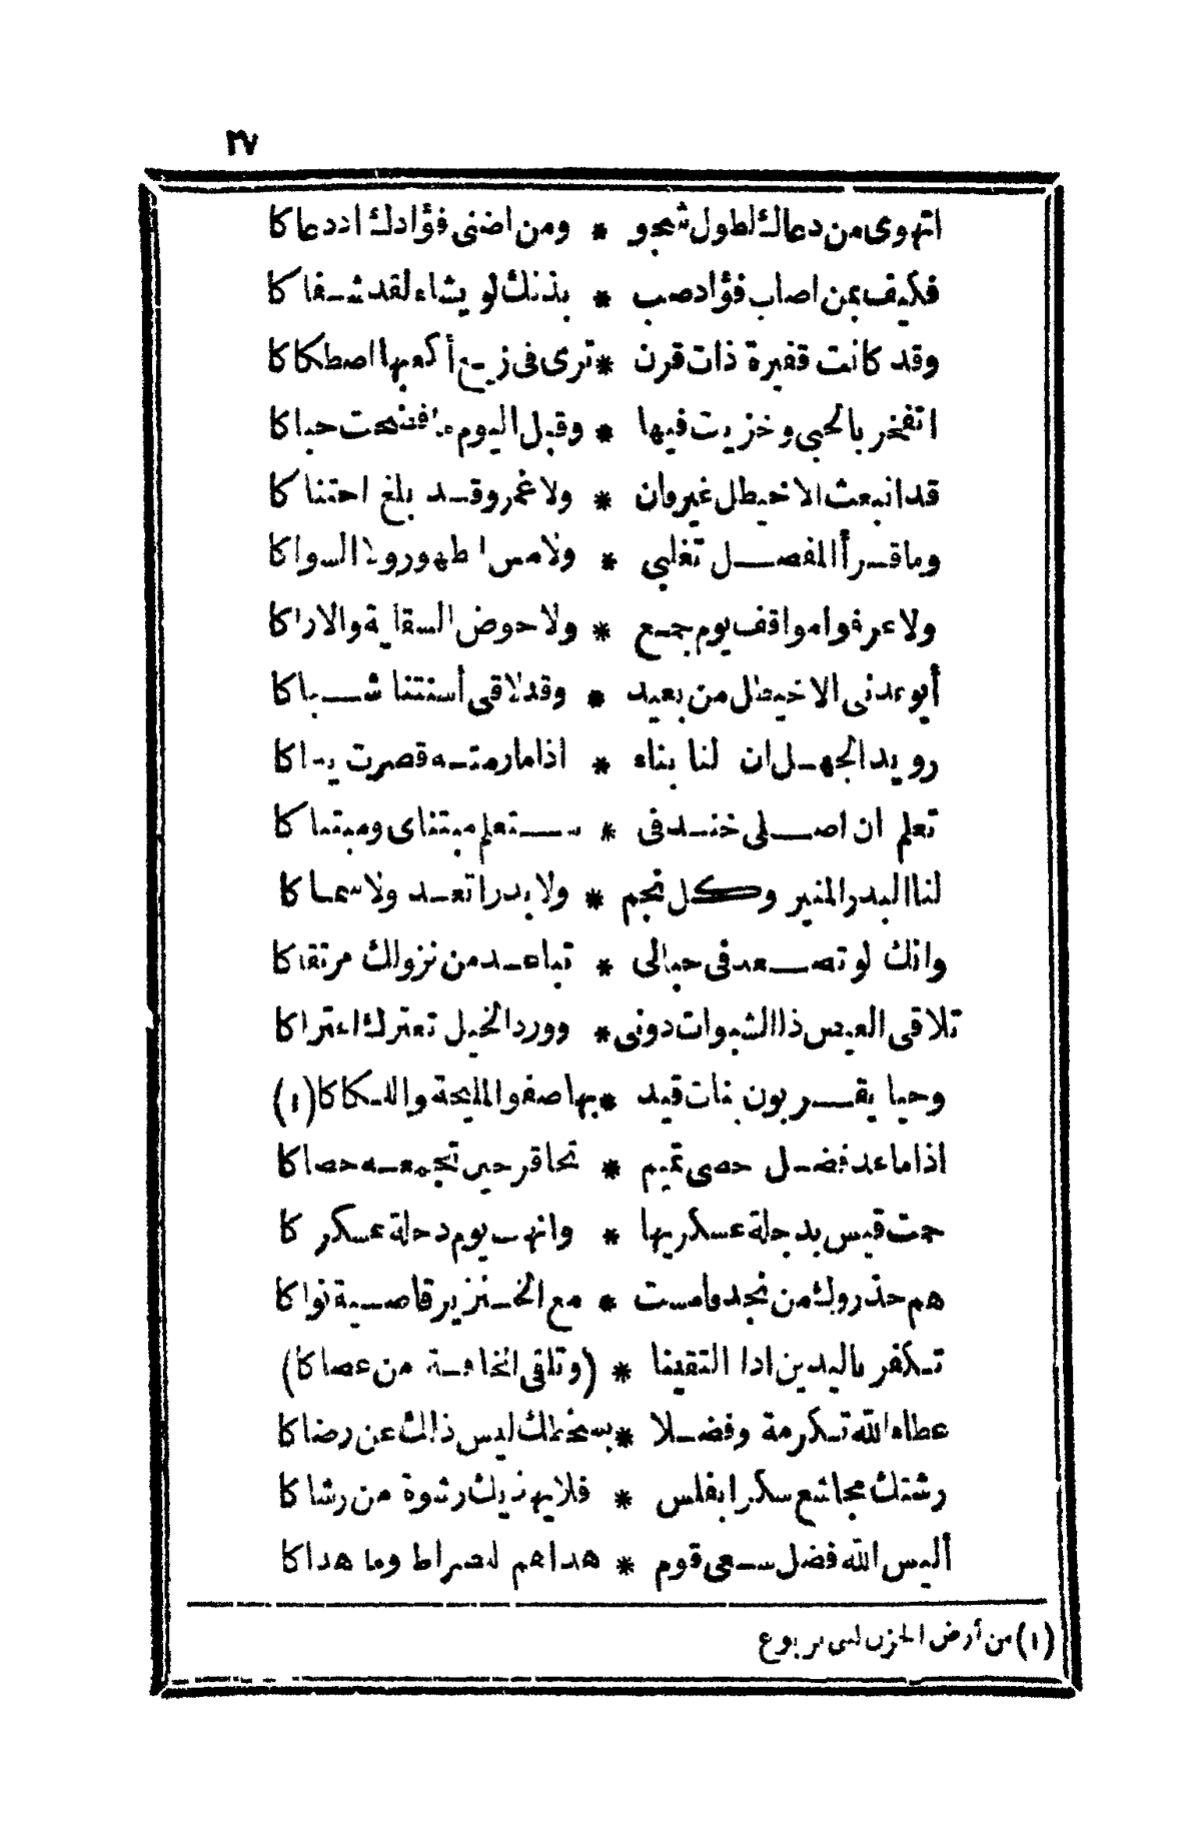 ٣٧
اتهوى من دعاك لطول شجو * ومن اضنى فؤادك اذ دعاكا
فكيف بمن اصاب فؤاد صب * بذلك لو يشاء لقد شفاكا
وقد كانت قفيرة ذات قرن * ترى فى زيغ أكعبها اصطكاكا
اتفخر بالحبى وخزيت فيها * وقبل اليوم ما فضحت حباكا
قد انبعث الاخيطل غير فان * ولا غمر وقد بلغ احتناكا
وما قرأ المفصل تغلبي * ولا مس الطهور ولا السواكا
ولا عرفوا مواقف يوم جمع * ولا حوض السقاية والاراكا
أيوعدنى الاخيطل من بعيد * وقد لاقى أسنتنا شباكا
رويد الجهل ان لنا بناء * اذا ما رمته قصرت يداكا
تعلم ان اصلى خندفى * ستعلم مبتناى ومبتناكا
لنا البدر المنير وكل نجم * ولا بدرا تعد ولا سماكا
وانك لو تصعد فى جبالى * تباعد من نزولك مرتقاكا
تلاقى العيص ذا الشبوات دونى * وورد الخيل تعترك اعتراكا
وحيا يقربون بنات قيد * بها صفوا المليحة واللكاكا (١)
اذا ما عد فضل حصى تميم * تحاقر حين تجمعه حصاكا
حمت قيس بدجلة عسكريها * وانهب يوم دجلة عسكركا
هم حذروك من نجد فامست * مع الخنزير قاصية نواكا
تكفر باليدين اذا التقينا * (وتلقى الخافة من عصاكا)
عطاء الله تكرمة وفضلا * بسخطك ليس ذلك عن رضاكا
رشتك مجاشع سكرا بفلس * فلا يهنيك رشوة من رشاكا
أليس الله فضل سعى قوم * هداهم لصراط وما هداكا
(١) من أرض الحزن لبنى يربوع